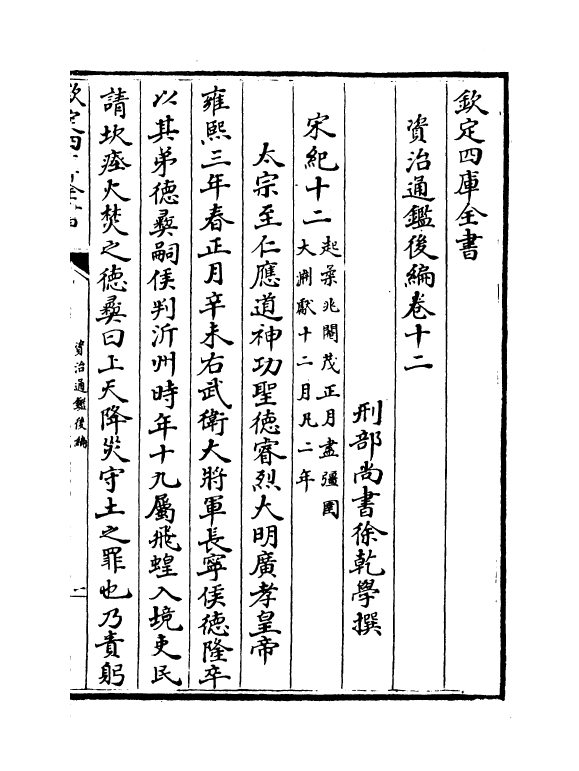 欽定四庫全書
資治通鑑後編卷十二
刑部尚書徐乾學撰
宋紀十二起柔兆閹茂正月盡彊圉
大淵獻十二月凡二年
太宗至仁應道神功聖德睿烈大明廣孝皇帝
雍熙三年春正月辛未右武衛大將軍長寧侯德隆卒
以其弟德彝嗣侯判沂州時年十九屬飛蝗入境吏民
請坎瘞火焚之德彝曰上天降災守土之罪也乃責躬
欽定四庫全書
資治通鑑後編
一